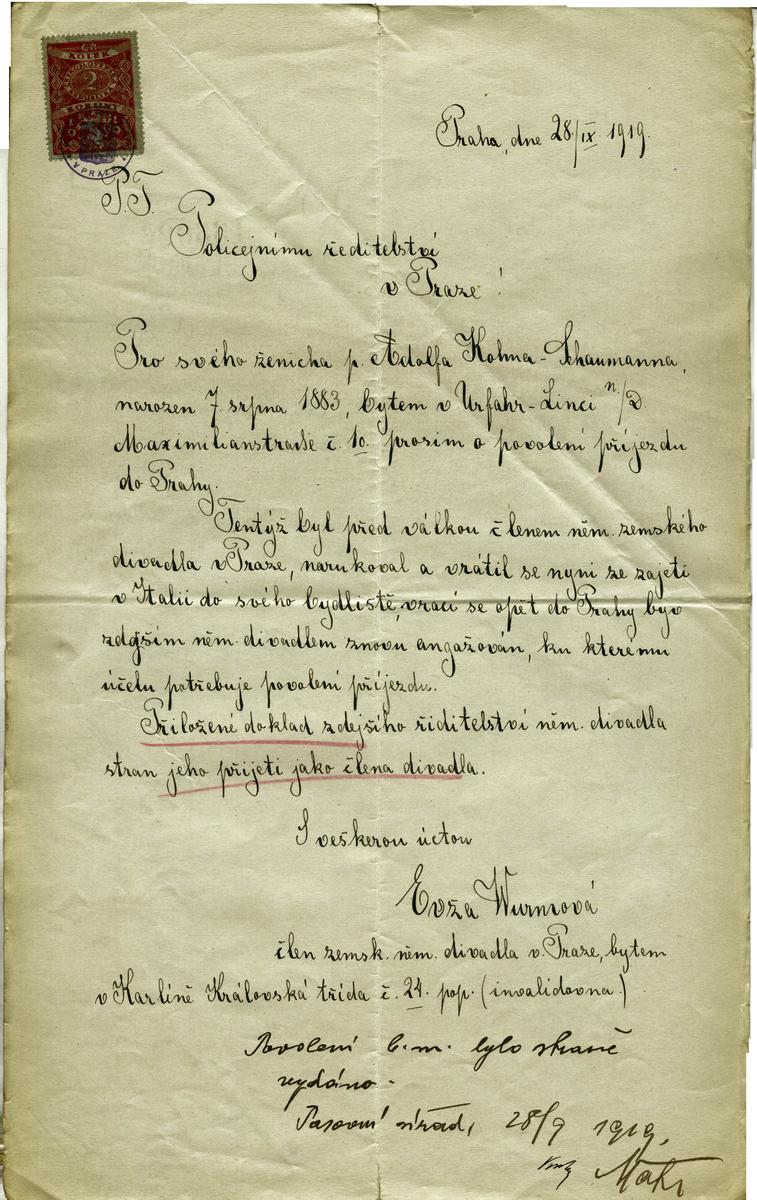 KOLEK
ČESKOSLOVENSKÁ
2
REPUBLIKA
KORUNY
V PRAZE
Praha, dne 28./IX. 1919.
P.T.
Policejnímu ředitelství
v Praze!
Pro svého ženicha p. Adolfa Kohna-Schaumanna,
narozen 7 srpna 1883, bytem v Urfahr-Linci n/D.
Maximilianstraße č. 10. prosim o povolení příjezdu
do Prahy.
Tentýž byl před válkou členem něm. zemského
divadla v Praze, narukoval a vrátil se nyni ze zajeti
v Italii do svého bydliště, vrací se opět do Prahy byv
zdejším něm. divadlem znovu angažován, ku kterému
účelu potřebuje povolení příjezdu.
Přiložené doklad zdejšího řiditelství něm. divadla
stran jeho přijeti jako člena divadla.
S veškerou úctou
Evža Wurmová
člen zemsk. něm. divadla v. Praze, bytem
v Karlíně Královská třída č. 24. pop. (invalidovna.)
Povolení b.m. bylo straně
vydáno.
Pasovní úřad, 28/9 1919.